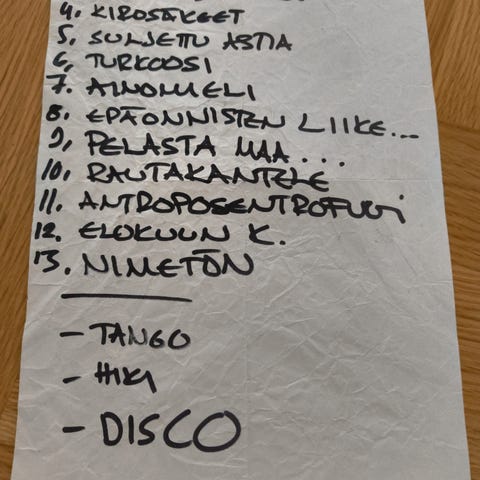 4. KIROSÄKEET
5. SULJETTU ASTIA
6. TURKOOSI
7. AINOMIELI
8. EPÄONNISTEN LIIKE...
9. PELASTA MAA...
10. RAUTAKANTELE
11. ANTROPOSENTROFUUGI
12. ELOKUUN K.
13. NIMETÖN
- TANGO
- HIKI
- DISCO